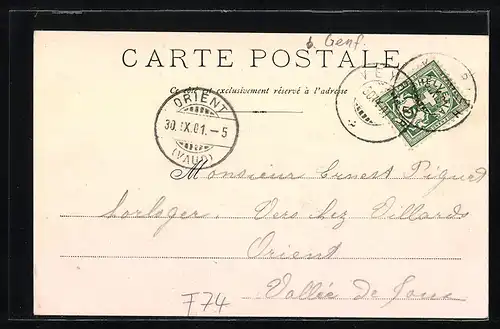 b. Genf
CARTE POSTALE
Ce côté est exclusivement réservé à l'adresse
ORIENT
30.IX.01.-5
(VAUD)
Monsieur Ernest Piguet
horloger. Vers chez Villards
Orient
Vallée de Joux
F74